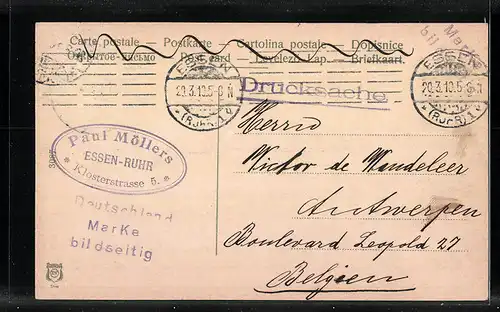 Carte postale — Postkarte — Cartolina postale — Dopisnice
Открытое письмо — Post card — Levelező-Lap. — Briefkaart.
Marke
ESSEN
29.3.10.5-6N
(RUHR) 1u
ESSEN
29.3.10.5-6N
(RUHR) 1u
Drucksache
Paul Möllers
ESSEN-RUHR
* Klosterstrasse 5. *
Deutschland
Marke
bildseitig
Herrn
Victor de Wandeleer
Antwerpen
Boulevard Leopold 27
Belgien